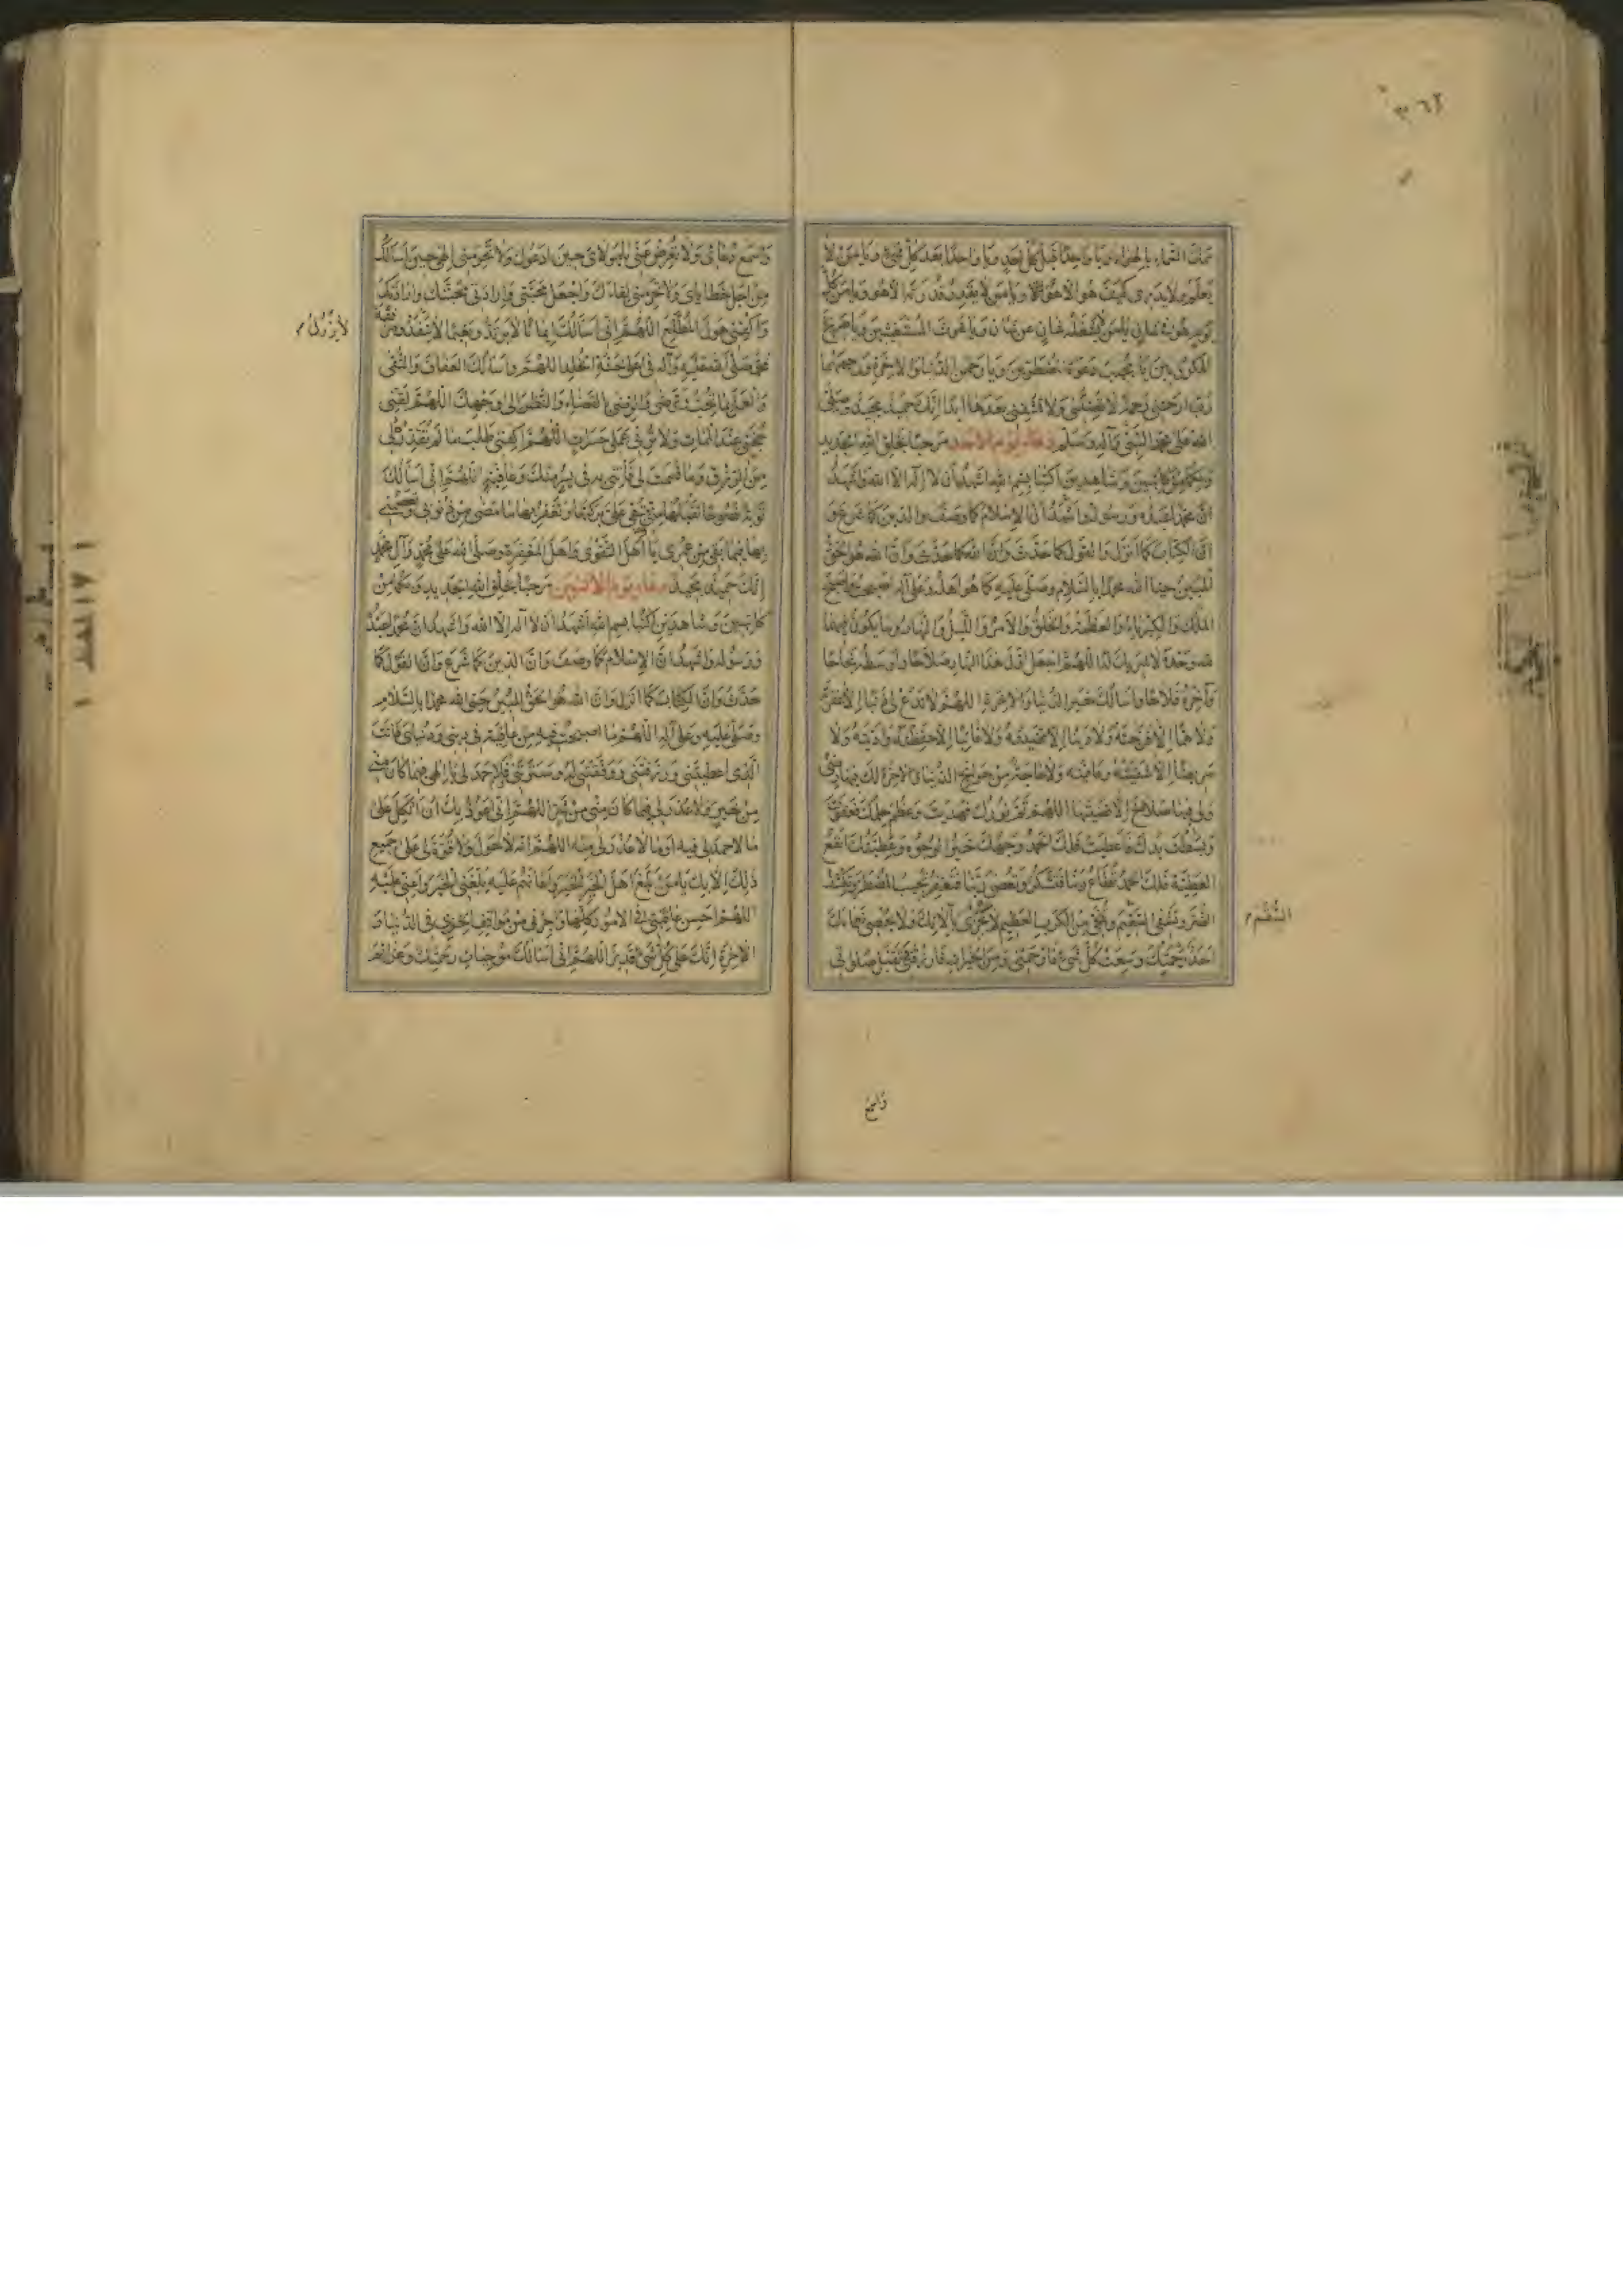 ٣٠٦٢
يمسك السماء يا لهواء ويا واحدا قبل كل احد ويا واحدا بعد كل شيء ويا من لا
يعلم ولا يدرى كيف هو الا هو ويا من لا يقدر قدرته الا هو ويا من كل
يوم هو فى شان يا من لا يشغله شان عن شان ويا غوث المستغيثين ويا صريخ
المكروبين يا مجيب دعوة المضطرين ويا رحمن الدنيا والاخرة ورحيمهما
رب ارحمنى رحمة لا تضلنى ولا تشقينى بعدها ابدا انك حميد مجيد وصلى
الله على محمد النبى وآله وسلم دعاء يوم الاحد مرحبا بخلق الله الجديد
وبكما من كاتبين وشاهدين اكتبا بسم الله اشهد ان لا اله الا الله واشهد
ان محمدا عبده ورسوله واشهد ان الاسلام كما وصف والدين كما شرع و
ان الكتاب كما انزل والقول كما حدث وان الله كما حدث وان الله هو الحق
المبين حيا الله محمدا بالسلام وصلى عليه كما هو اهله وعلى آله اصبحت واصبح
الملك والكبرياء والعظمة والخلق والامر والليل والنهار وما يكون فيهما
لله وحده لا شريك له اللهم اجعل اول هذا النهار صلاحا واوسطه نجاحا
وآخره فلاحا واسالك خير الدنيا والاخرة اللهم لا تدع لى ذنبا الا غفرته
ولا هما الا فرجته ولا دينا الا قضيته ولا غائبا الا حفظته واديته ولا
مريضا الا شفيته وعافيته ولا حاجة من حوائج الدنيا والاخرة لك فيها رضى
ولى فيها صلاح الا قضيتها اللهم تم نورك فهديت وعظم حلمك فعفوت
وبسطت يدك فاعطيت فلك الحمد وجهك خير الوجوه وعطيتك انفع
العطية فلك الحمد تطاع ربنا فتشكر وتعصى ربنا فتغفر تجيب المضطر وتكشف
الضر وتشفى السقيم وتنجى من الكرب العظيم لا يجزى بآلائك ولا يحصى نعماءك
احد رحمتك وسعت كل شيء فارحمنى ومن الخيرات فارزقنى تقبل صلوتى
السقم
واسمع
واسمع دعائى ولا تعرض عنى يا مولاى حين ادعوك ولا تحرمنى الهى حين اسالك
من اجل خطاياى ولا تحرمنى لقاءك واجعل محبتى وارادتى محبتك وارادتك
واكفنى هول المطلع اللهم انى اسالك ايمانا لا يرتد ونعيما لا ينفد ومرافقة
محمد صلى الله عليه وآله فى اعلى جنة الخلد اللهم واسالك العفاف والتقى
والعمل بما تحب وترضى والرضى بالقضاء والنظر الى وجهك اللهم لقنى
حجتى عند الممات ولا ترنى عملى حسرات اللهم اكفنى طلب ما لم تقدر لى
من الرزق وما قسمت لى فاتنى به فى يسر منك وعافية اللهم انى اسالك
توبة نصوحا تقبلها منى تبقى على بركتها وتغفر بها ما مضى من ذنوبى وتعصمنى
بها فيما بقى من عمرى يا اهل التقوى واهل المغفرة وصل الله على محمد وآل محمد
انك حميد مجيد دعاء يوم الاثنين مرحبا بخلق الله الجديد وبكما من
كاتبين وشاهدين اكتبا بسم الله اشهد ان لا اله الا الله واشهد ان محمدا عبده
ورسوله واشهد ان الاسلام كما وصف وان الدين كما شرع وان القول كما
حدث وان الكتاب كما انزل وان الله هو الحق المبين حيى الله محمدا بالسلام
وصلى عليه وعلى آله اللهم ما اصبحت فيه من عافية فى دينى ودنياى فانت
الذى اعطيتنى ورزقتنى ووفقتنى له وسترتنى فلا حمد لى يا الهى فيما كان منى
من خير ولا عذر لى فيما كان منى من شر اللهم انى اعوذ بك ان اتكل على
ما لا حمد لى فيه او ما لا عذر لى منه اللهم انه لا حول ولا قوة لى على جميع
ذلك الا بك يا من بلغ اهل الخير الخير واعانهم عليه بلغنى الخير واعنى عليه
اللهم احسن عاقبتى فى الامور كلها واجرنى من مواقف الخزى فى الدنيا و
الاخرة انك على كل شئ قدير اللهم انى اسالك موجبات رحمتك وعزائم